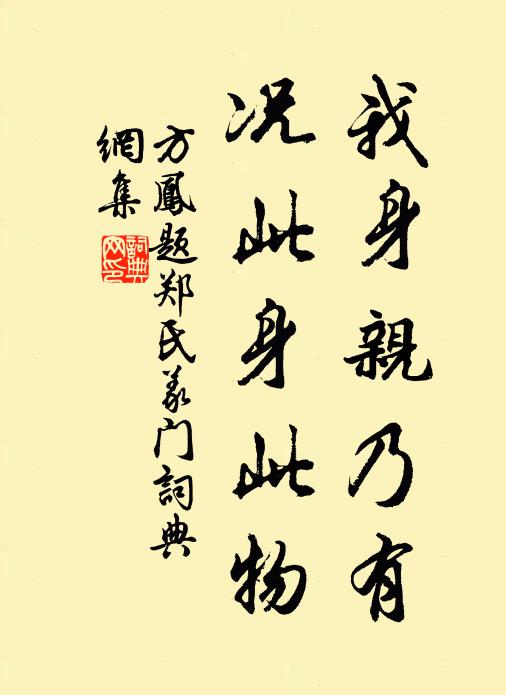 我身親乃有
况此身此物
方鳳題郑氏義门詞典
網集
詞典網印